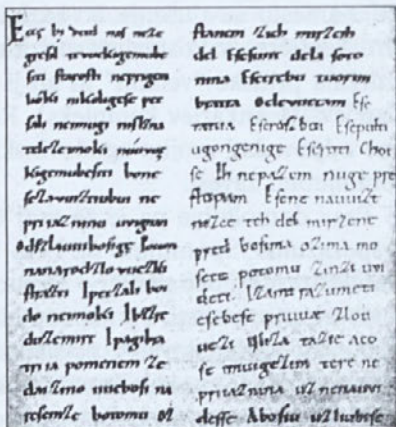 Ecce bi detd naſ neze
greſil tevuekigemube
ſiti ſtaroſti neprigem
lióki nikoligeſe pet
ſali neimugi niſlzna
teleze imoki núuvę
kigemubeſiti bone
ſezavuizniubui ne
priiazninu uvignan
od ſzlauuiboſigę Potom
nanarodzlovuezki
ſtraſti Ipetzali boi
do neimoki Ibzzre
duzemirt Ipagibra
triia pomenem ze
dai zino uueboſi na
reſemze botomu oz
ſtanem zich mirzcih
del Eſeſunt dela ſoto
nina Eſetrebu tuorim
bratra oclevuetam Eſe
tatua Eſeraſboi Eſepulti
ugongenige Eſeroti Choi
ſe Ih nepazem nuge pre
ſtopam Eſene nauuiзt
neзce teh del mirzene
pred boſima ozima mo
ſete potomu zinzi uvi
deti Izami razumeti
eſebeſe priuuae zlou
uezi Uliza tazie aco
ſe imuigezim tere ne
priiaznina uznenauvi
deſſe Aboſiu uzliubiſe